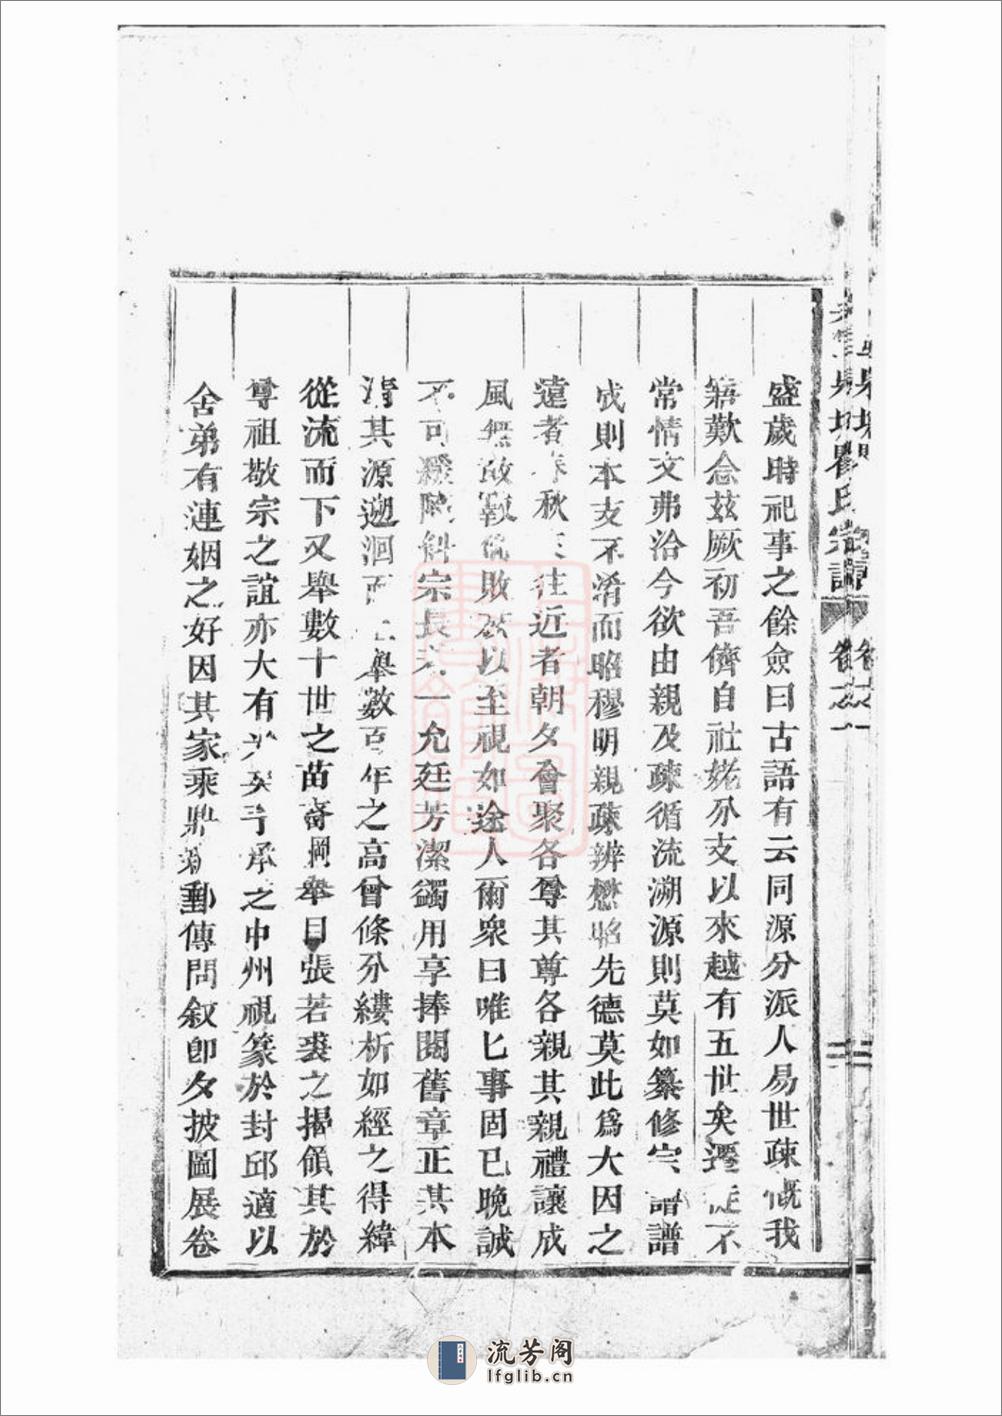 盛歲時祀事之餘僉曰古語有云同源分派人易世疎慨我
寤歎念茲厥初吾儕自社姥分支以來越有五世矣遷徙不
常情文弗洽今欲由親及疎循流溯源則莫如纂修宗譜譜
成則本支不淆而昭穆明親疎辨懋昭先德莫此為大因之
遠者春秋往近者朝夕會聚各尊其尊各親其親禮讓成
風無敢以至視如途人爾衆曰唯匕事固已晚誠
不可緩宗長一允廷芳潔蠲用享捧閱舊章正其本
清其源遡洄而舉數百年之高曾條分縷析如經之得緯
從流而下又舉數十世之苗裔綱舉目張若裘之挈領其於
尊祖敬宗之誼亦大有光矣予承之中州視篆於封邱適以
舍弟有漣姻之好因其家乘郵傳問叙卽夕披圖展卷
氏宗譜
卷之一
二
流芳阁
lfglib.cn